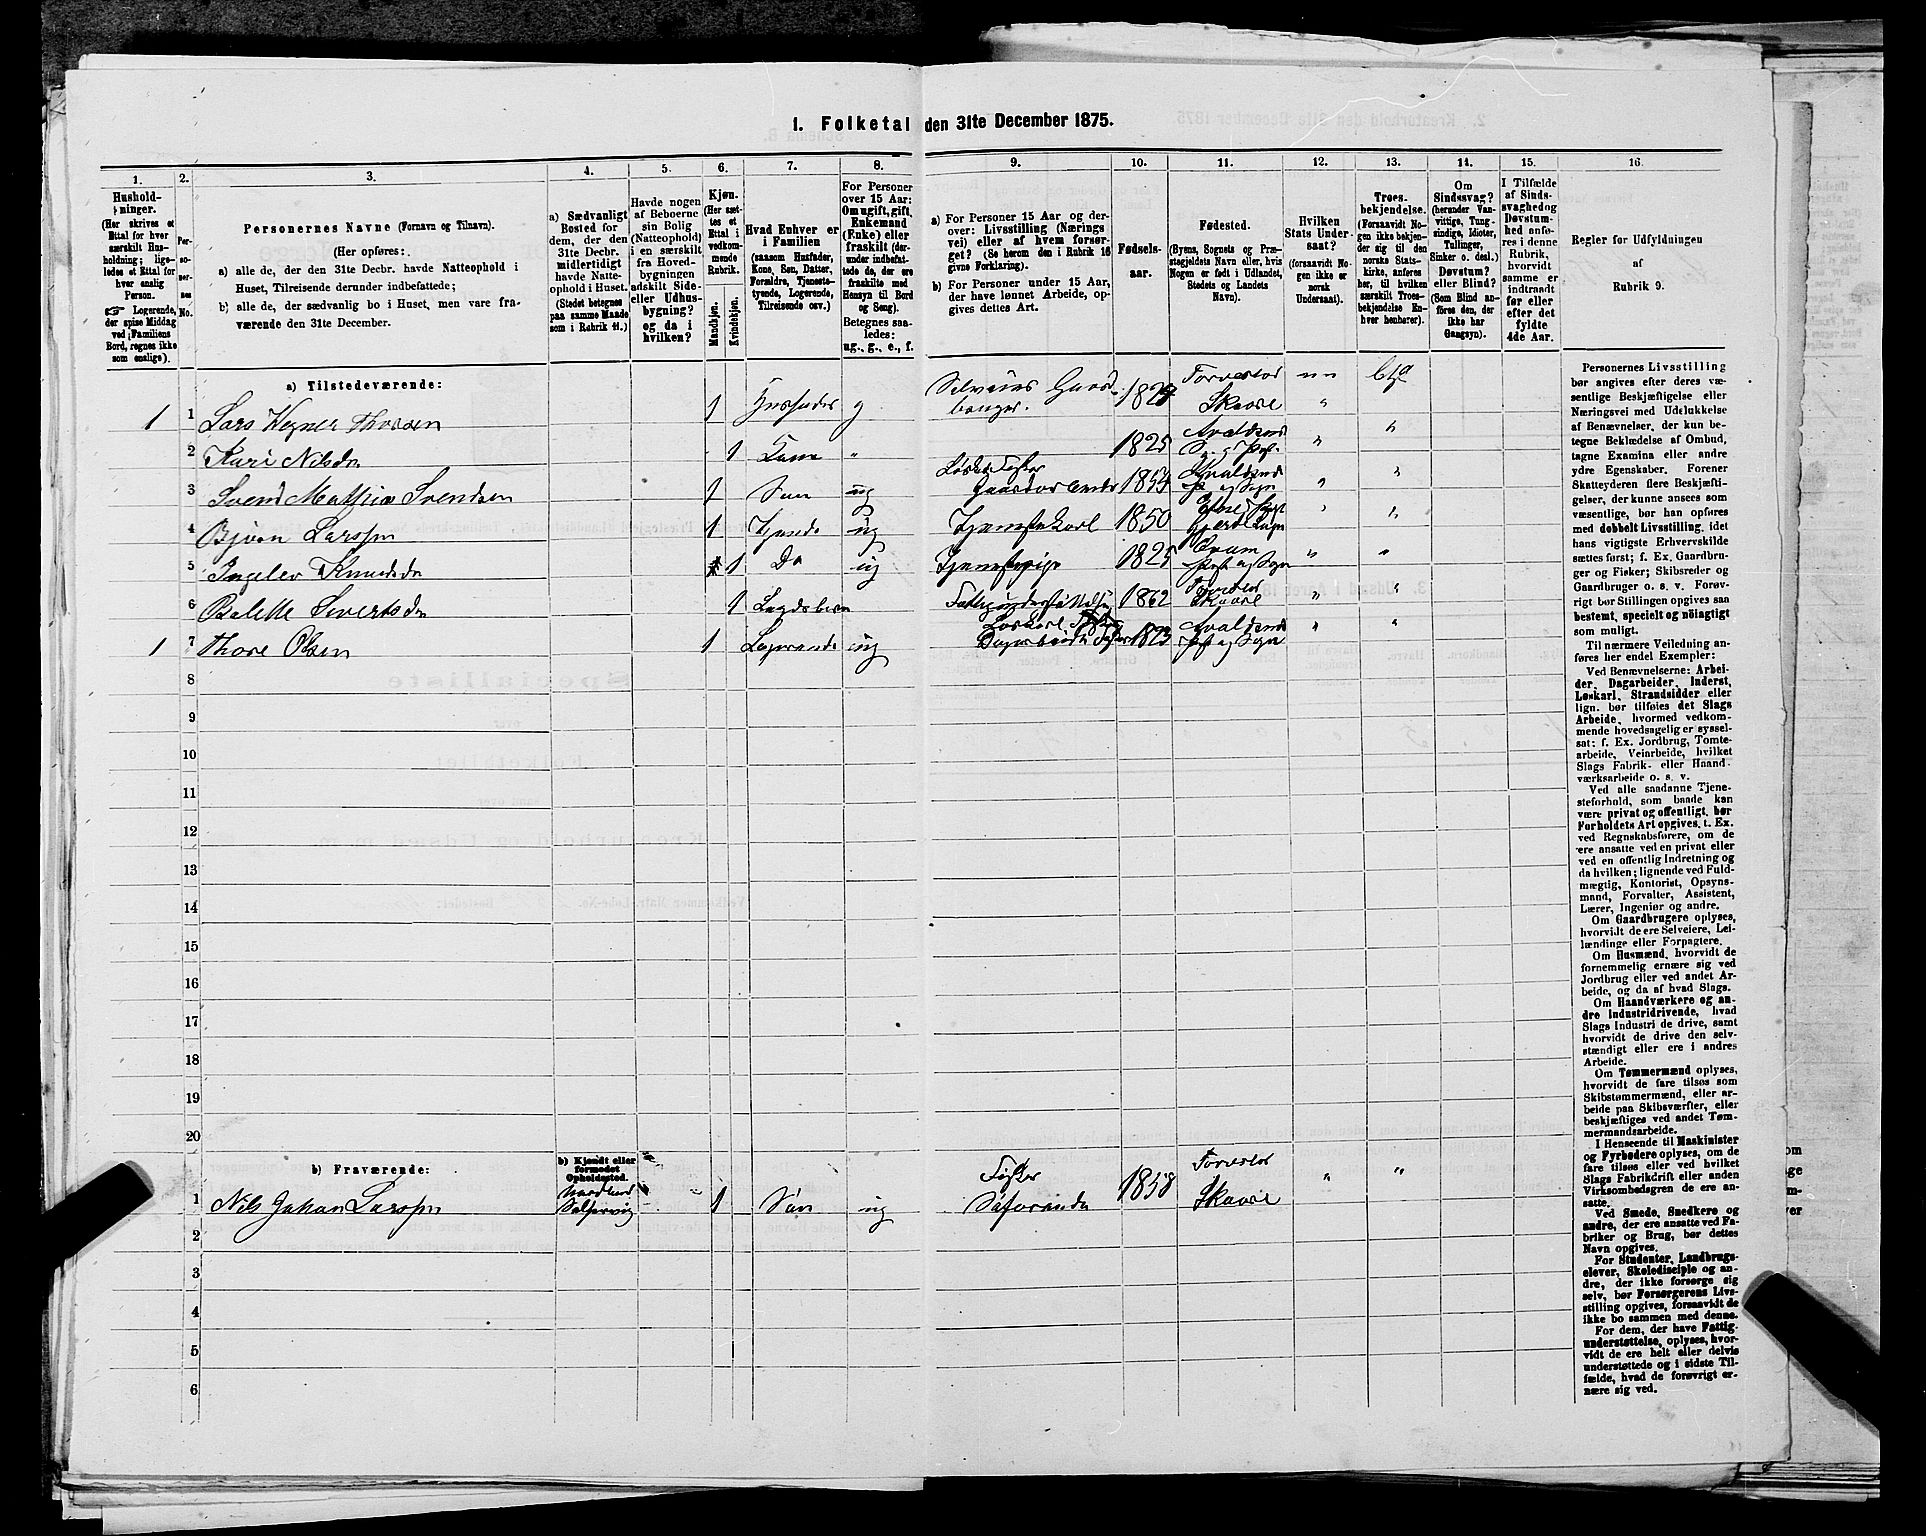 1. Folketal den 31te December 1875.
1. 2. 3. 4. 5. 6. 7. 8. 9. 10. 11. 12. 13. 14. 15. 16.
Hushold-
ninger.
(Her skrives et
Ettal for hver
særskilt Hus-
holdning; lige-
ledes et Ettal for
hver enslig
Person.
☞ Logerende,
der spise Middag
ved Familiens
Bord, regnes ikke
som enslige).
Per-
so-
ner-
nes
No.
Personernes Navne (Fornavn og Tilnavn).
(Her opføres:
a) alle de, der den 31te Decbr. havde Natteophold i
Huset, Tilreisende derunder indbefattede;
b) alle de, der sædvanlig bo i Huset, men vare fra-
værende den 31te December.
a) Sædvanligt
Bosted for
dem, der den
31te Decbr.
midlertidigt
havde Natte-
ophold i Huset.
(Stedet betegnes
paa samme Maade
som i Rubrik 11.)
Havde nogen
af Beboerne
sin Bolig
(Natteophold)
i en særskilt
fra Hoved-
bygningen
adskilt Side-
eller Udhus-
bygning?
og da i
hvilken?
Kjøn.
(Her sæt-
tes et
Ettal i
vedkom-
mende
Rubrik.
Mandkjøn.
Kvindekjøn.
Hvad Enhver er
i Familien
(saasom Husfader,
Kone, Søn, Datter,
Forældre, Tjeneste-
tyende, Logerende,
Tilreisende osv.)
For Personer
over 15 Aar:
Om ugift, gift,
Enkemand
(Enke) eller
fraskilt (der-
under indbefat-
tede de, der ere
fraskilte med
Hensyn til Bord
og Seng).
Betegnes saa-
ledes:
ug., g., e., f.
a) For Personer 15 Aar og der-
over: Livsstilling (Nærings
vei) eller af hvem forsør-
get? (Se herom den i Rubrik 16
givne Forklaring).
b) For Personer under 15 Aar,
der have lønnet Arbeide, op-
gives dettes Art.
Fødsels-
aar.
Fødested.
(Byens, Sognets og Præ-
stegjeldets Navn eller, hvis
Nogen er født i Udlandet,
Stedets og Landets
Navn).
Hvilken
Stats Under-
saat?
(forsaavidt No-
gen ikke er
norsk
Undersaat).
Troes-
bekjendelse.
(Forsaavidt No-
gen ikke bekjen-
der sig til den
norske Stats-
kirke, anføres
her, til hvilken
særskilt Troes-
bekjendelse En-
hver henhører).
Om
Sindssvag?
(herunder Van-
vittige, Tung-
sindige, Idioter,
Tullinger,
Sinker o. desl.)
Døvstum?
eller Blind?
(Som Blind an-
føres den, der
ikke har
Gangsyn).
I Tilfælde
af Sinds-
svaghed og
Døvstum-
hed anfø-
res i denne
Rubrik,
hvorvidt
samme er
indtraadt
før eller
efter det
fyldte
4de Aar.
Regler for Udfyldningen
af
Rubrik 9.
a) Tilstedeværende:
1 1 Lars Wegner Thorsen 1 Husfader g Selveiens Gaardbruger. 1829 Torvestad Skaare
2 Kari Nilsdn 1 Kone " 1825 Avaldsnes
3 Svend Mathias Svendsen 1 Søn ug Fisker 1854 Avaldsnes
4 Bjørn Larssen 1 Tjende ug Tjenestekarl 1850
5 Ingelev Knudsdn 1 Do ug Tjenestepige 1825
6 Bolette Sivertsdn 1 1862 Torvestad Skaare
1 7 Thore Olsen 1 Logerende ug 1823 Avaldsnes
8
9
10
11
12
13
14
15
16
17
18
19
20
b) Fraværende:
b) Kjendt eller
formodet
Opholdssted.
1 Nils Johan Larssen Nordland 1 Søn ug Fisker Søfarende 1858 Torvestad Skaare " "
2
3
4
5
6
Personernes Livsstilling
bør angives efter deres væ-
sentlige Beskjæftigelse eller
Næringsvei med Udelukkelse
af Benævnelser, der kun be-
tegne Beklædelse af Ombud,
tagne Examina eller andre
ydre Egenskaber. Forener
Skatteyderen flere Beskjæfti-
gelser, der kunne ansees som
væsentlige, bør han opføres
med dobbelt Livsstilling, idet
hans vigtigste Erhvervskilde
sættes først; f. Ex. Gaardbru-
ger og Fisker; Skibsreder og
Gaardbruger o. s. v. Forøv-
rigt bør Stillingen opgives saa
bestemt, specielt og nøiagtigt
som muligt.
Til nærmere Veiledning an-
føres her endel Exempler:
Ved Benævnelserne: Arbei-
der, Dagarbeider, Inderst,
Løskarl, Strandsidder eller
lign. bør tilføies det Slags
Arbeide, hvormed vedkom-
mende hovedsagelig er syssel-
sat: f. Ex. Jordbrug, Tomte-
arbeide, Veiarbeide, hvilket
Slags Fabrik- eller Haand-
værksarbeide o. s. v.
Ved alle saadanne Tjene-
steforhold, som baade kan
være privat og offentligt, bør
Forholdets Art opgives, t. Ex.
ved Regnskabsførere, om de
ere ansatte ved en privat eller
ved en offentlig Indretning og
da hvilken; lignende ved Fuld-
mægtig, Kontorist, Opsyns-
mand, Forvalter, Assistent,
Lærer, Ingeniør og andre.
Om Gaardbrugere oplyses,
hvorvidt de ere Selveiere, Lei-
lændinge eller Forpagtere.
Om Husmænd, hvorvidt de
fornemmelig ernære sig ved
Jordbrug eller ved andet Ar-
beide, og da af hvad Slags.
Om Haandværkere og an-
dre Industridrivende, hvad
Slags Industri de drive, samt
hvorvidt de drive den selv-
stændigt eller ere i andres
Arbeide.
Om Tømmermænd oplyses,
hvorvidt de fare tilsøs som
Skibstømmermænd, eller ar-
beide paa Skibsværfter, eller
beskjæftiges ved andet Tøm-
mermandsarbeide.
I Henseende til Maskinister
og Fyrbødere oplyses, om de
fare tilsøs eller ved hvilket
Slags Fabrikdrift eller anden
Virksomhedsgren de ere an-
satte.
Ved Smede, Snedkere og
andre, der ere ansatte ved Fa-
briker og Brug, bør dettes
Navn opgives.
For Studenter, Landbrugs-
elever, Skoledisciple og an-
dre, der ikke forsørge sig
selv, bør Forsørgerens Livs-
stilling opgives, forsaavidt de
ikke bo sammen med denne.
For dem, der have Fattig-
understøttelse, oplyses, hvor-
vidt de ere helt eller delvis
understøttede og i sidste Til-
fælde, hvad de forøvrigt er-
nære sig ved.